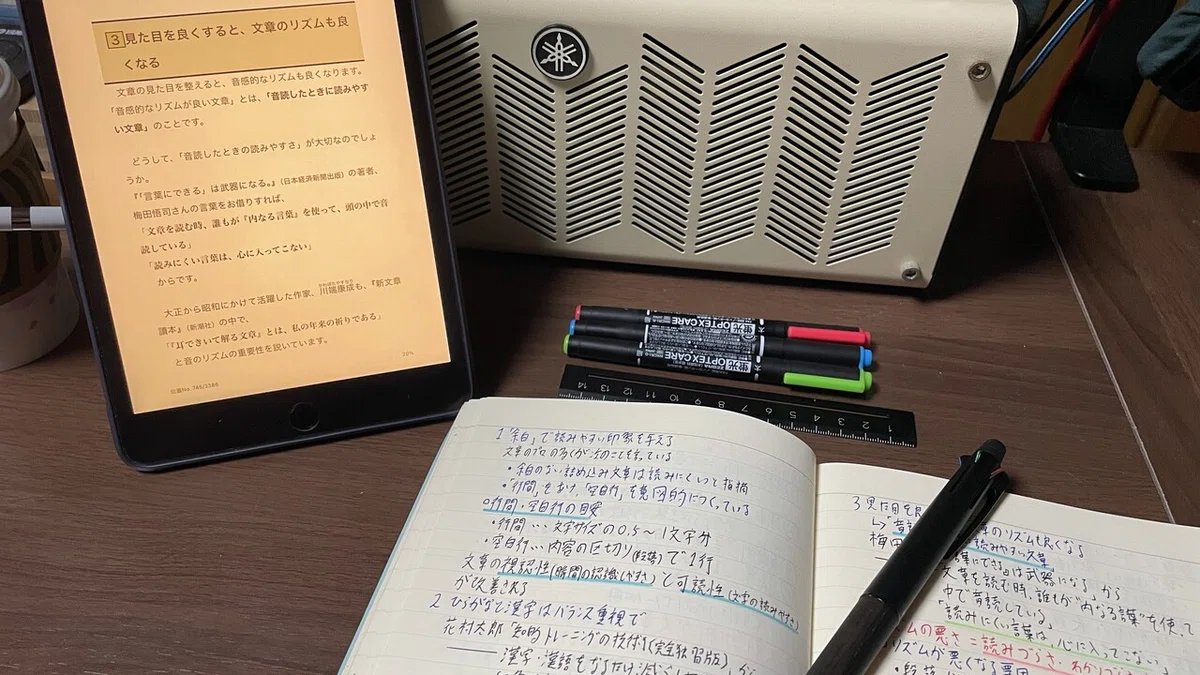 3 見た目を良くすると、文章のリズムも良
くなる
文章の見た目を整えると、音感的なリズムも良くなります。
「音感的なリズムが良い文章」とは、「音読したときに読みやす
い文章」のことです。
どうして、「音読したときの読みやすさ」が大切なのでしょ
うか。
『「言葉にできる」は武器になる。』(日本経済新聞出版)の著者、
梅田悟司さんの言葉をお借りすれば、
「文章を読む時、誰もが『内なる言葉』を使って、頭の中で音
読している」
「読みにくい言葉は、心に入ってこない」
からです。
大正から昭和にかけて活躍した作家、川端康成も、『新文章
讀本』(新潮社)の中で、
「『耳できいて解る文章』とは、私の年来の祈りである」
と音のリズムの重要性を説いています。
位置No. 745/3386
22%
蛍光 OPTEX CARE ZEBRA
蛍光 OPTEX CARE ZEBRA
14 13 12 11 10 9 8 7 6 5 4 3 2 1
1 「余白」で読みやすい印象を与える
文章のプロの多くが次のことを言っている
・余白のない詰め込み文章は読みにくいと指摘
・「行間」をあけ、「空白行」を意図的につくっている
○行間・空白行の目安
・行間… 文字サイズの0.5〜1文字分
・空白行… 内容の区切り で1行
文章の視認性(瞬間の認識しやすさ)と可読性(文字の読みやすさ)
が改善される
2 ひらがなと漢字はバランス重視で
花村太郎「知的トレーニングの技術(完全独習版)」から
漢字・漢語をなるだけ減らし
3 見た目を良
のリズムも良くなる
↳「音読
読みやすい文章
梅田
言葉にできる」は武器になる から
文章を読む時、誰もが"内なる言葉"を使って
中で音読している」
「読みにくい言葉は、心に入ってこない」
ムの悪さ=読みづらさ・わかりづらさ
リズムが悪くなる要因